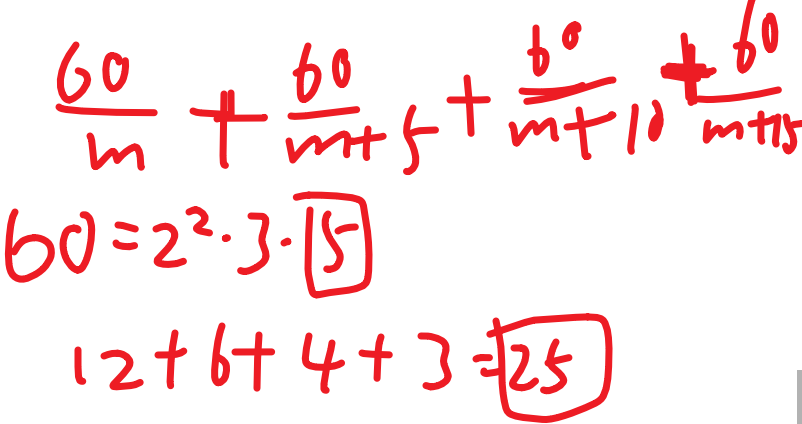 60/m + 60/m+5 + 60/m+10 + 60/m+15
60 = 2² · 3 · 5
12 + 6 + 4 + 3 = 25